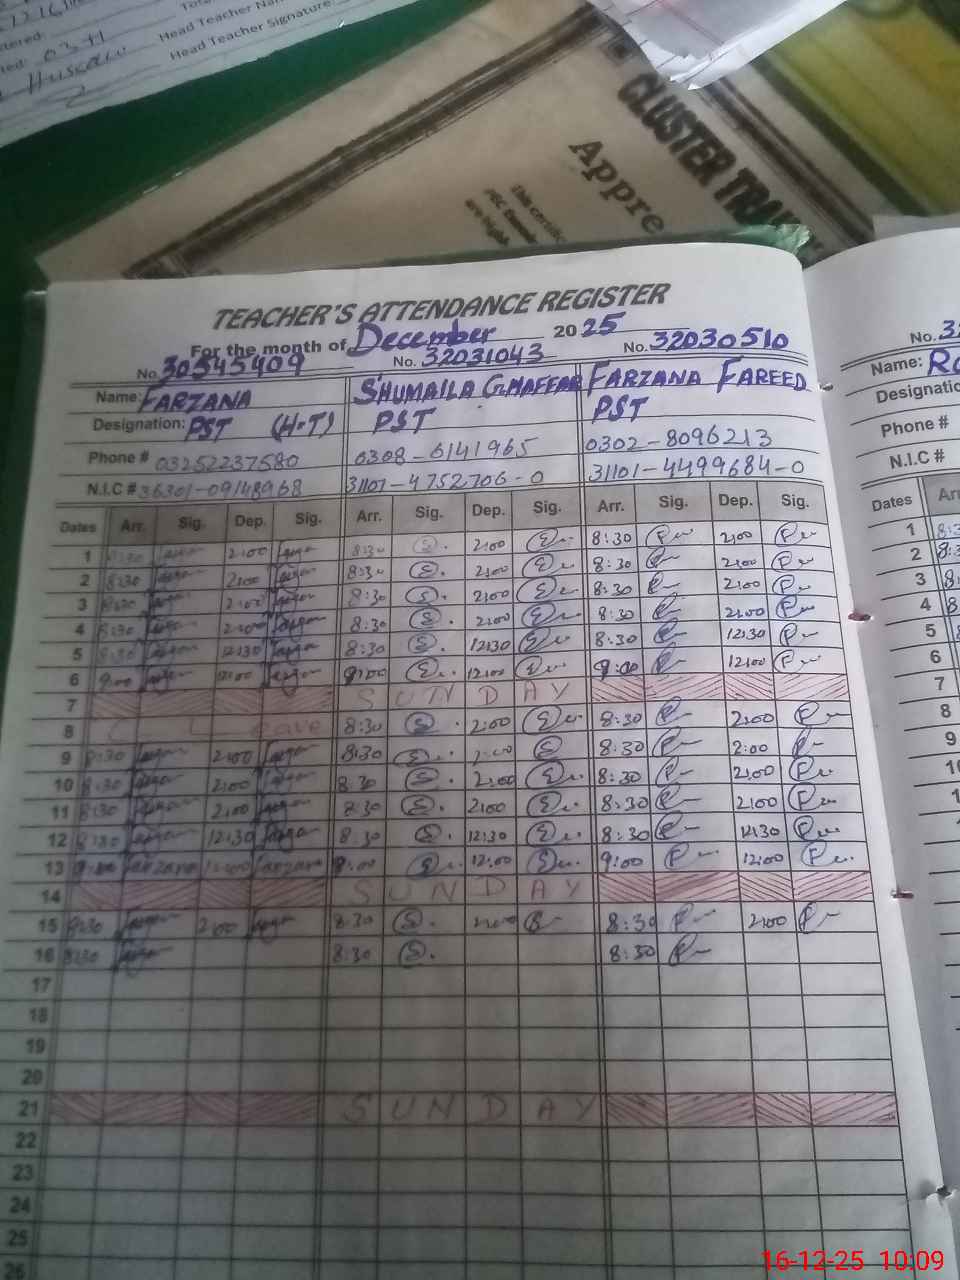 Head Teacher Signature:
CLUSTER
Appre
TEACHER'S ATTENDANCE REGISTER
For the month of December 2025
No. 30345409 No. 32031043 No. 32030510
Name: FARZANA SHUMAILA GHAFFAR FARZANA FAREED
Designation: PST (H-T) PST PST
Phone # 03252237580 0308-6141965 0302-8096213
N.I.C # 36301-09148968 31101-4752706-0 31101-4499684-0
Dates Arr. Sig. Dep. Sig. Arr. Sig. Dep. Sig. Arr. Sig. Dep. Sig.
1 8:30 2:00 8:30 2:00 8:30 2:00
2 8:30 2:00 8:30 2:00 8:30 2:00
3 8:30 2:00 8:30 2:00 8:30 2:00
4 8:30 2:00 8:30 2:00 8:30 2:00
5 8:30 12:30 8:30 12:30 8:30 12:30
6 9:00 12:00 9:00 12:00 9:00 12:00
7 SUNDAY
8 C Leave 8:30 2:00 8:30 2:00
9 8:30 2:00 8:30 2:00 8:30 2:00
10 8:30 2:00 8:30 2:00 8:30 2:00
11 8:30 2:00 8:30 2:00 8:30 2:00
12 8:30 12:30 8:30 12:30 8:30 12:30
13 9:00 Farzana 12:00 Farzana 9:00 12:00 9:00 12:00
14 SUNDAY
15 8:30 2:00 8:30 2:00 8:30 2:00
16 8:30 8:30 8:30
17
18
19
20
21 SUNDAY
22
23
24
25
26
No. 32
Name:
Designatio
Phone #
N.I.C #
Dates
1
2
3
4
5
6
7
8
9
16-12-25 10:09